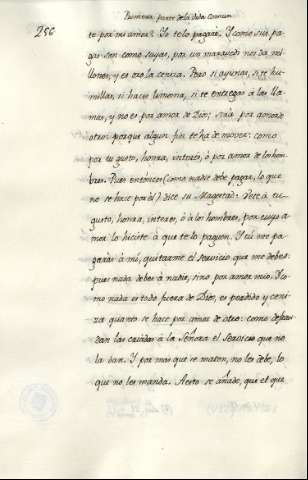 Primera parte de la Vida Comun
256
te por mi amor? Yo te lo pagaré. Y como sus pa-
gas son como suyas, por un maravedí nos da mi-
llones, y es oro la ceniza. Pero si ayunas, si te hu-
millas, si haces limosna, si te entregas á las lla-
mas, y no es por amor de Dios; será por amor de
otro: porque algun fin te ha de mover: como
por tu gusto, honra, interés, ó por amor de los hom-
bres. Pues entonces (como nadie debe pagar, lo que
no se hace por él) dice su Magestad: Vete á tu
gusto, honra, interes, ó á los hombres, por cuyo a-
mor lo hiciste á que te lo paguen. Y tú me pa-
garás á mí, quitarme el servicio que me debes
pues nada debes á nadie, sino por amor mio. Co-
mo nada es todo fuera de Dios, es perdido y ceni-
za quanto se hace por amor de otro: como
dan las criadas á la Señora el servicio que no
la dan. Y por más que se maten, no les debe, lo
que no les manda. A esto se añade, que el que